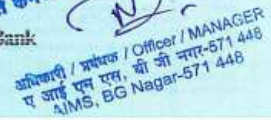 Bank
अधिकारी / प्रबंधक / Officer / MANAGER
ए आई एम एस, बी जी नगर-571 448
AIMS, BG Nagar-571 448